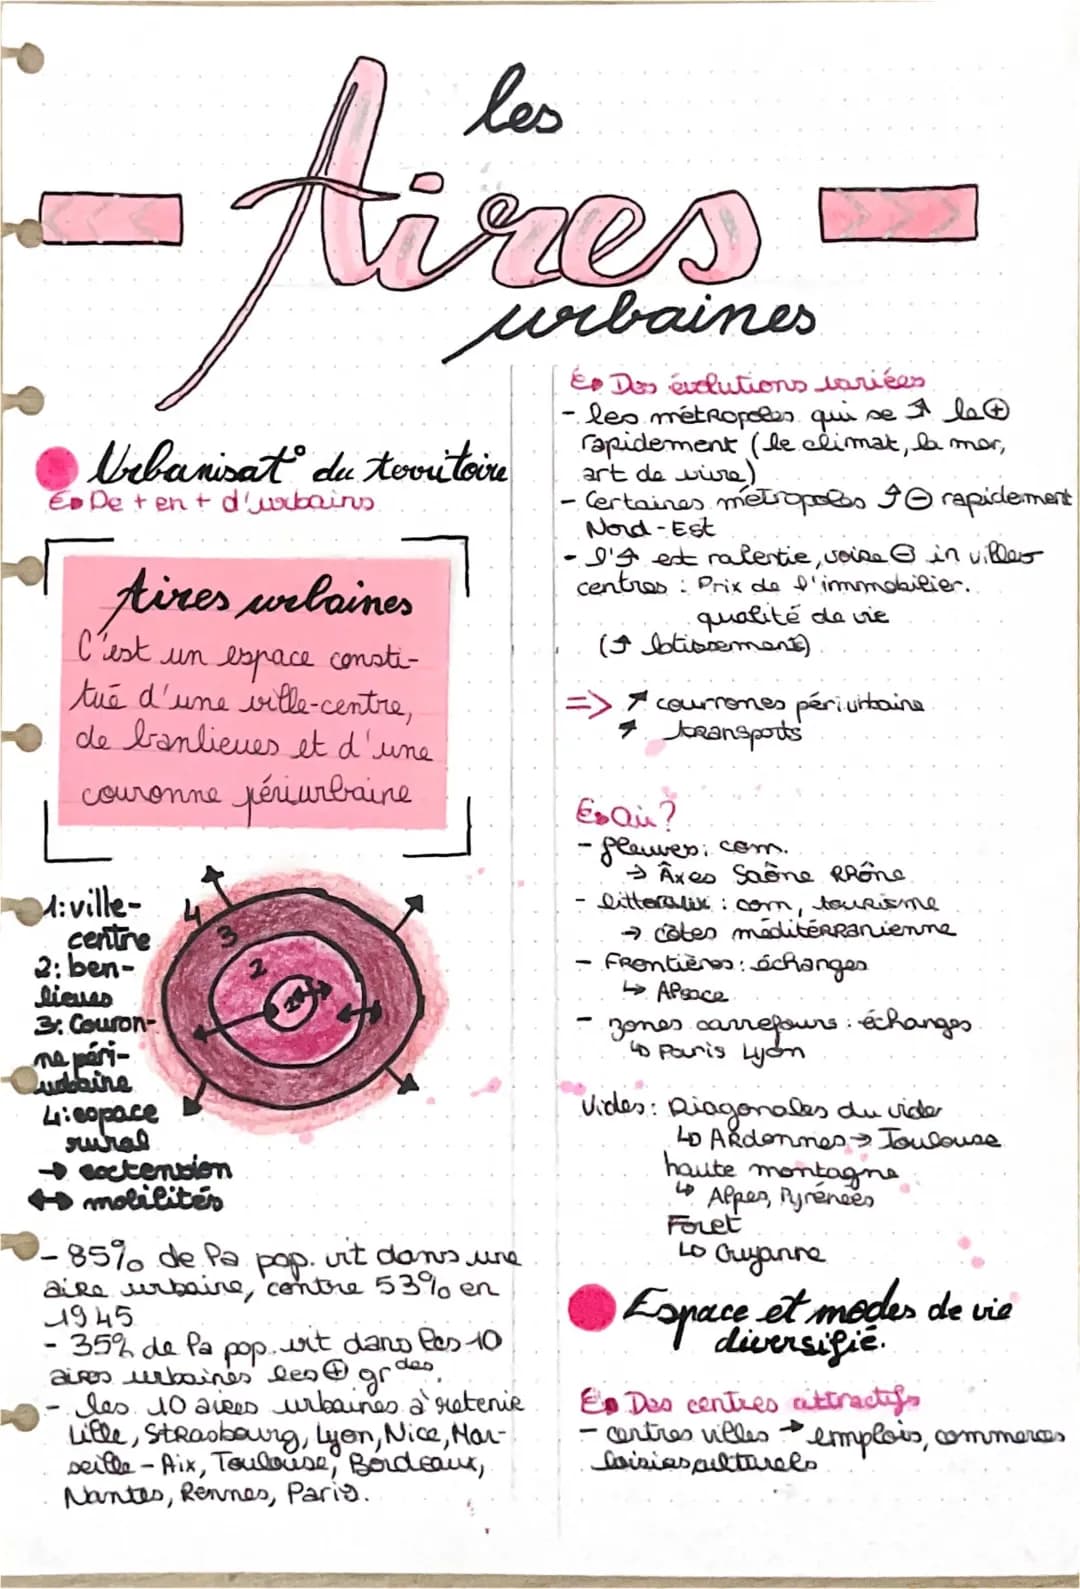 les
Aires
urbaines
Urbanisat° du territoire
De + en + d'urbains
Aires urbaines
C'est un espace consti-
tué d'une ville-centre,
de banlieues et d'une
couronne périurbaine
1: ville-
centre
2: ben-
lieues
3: Couron-
ne péri-
urbaine
4: espace
rural
→ extension
↔ mobilités
4
3
2
1
- 85% de la pop. vit dans une
aire urbaine, contre 53% en
1945
- 35% de la pop. vit dans les 10
aires urbaines les ⊕ gr des.
- les 10 aires urbaines à retenir
Lille, Strasbourg, Lyon, Nice, Mar-
seille - Aix, Toulouse, Bordeaux,
Nantes, Rennes, Paris.
Des évolutions variées
- les métropoles qui se ↗ le ⊕
rapidement (le climat, la mer,
art de vivre)
- Certaines métropoles ↗ ⊖ rapidement
Nord-Est
- l'↗ est ralentie, voire ⊖ in villes
centres : Prix de l'immobilier.
qualité de vie
(↗ lotissements)
=> ↗ courronnes périurbaine
↗ transports
Où ?
- fleuves: com.
→ Âxes Saône Rhône
- littoraux : com, tourisme
→ côtes méditérranienne
- Frontières: échanges
↳ Alsace
- zones carrefours : échanges
↳ Paris Lyon
Vides: Diagonales du vide
↳ Ardennes → Toulouse
haute montagne
↳ Alpes, Pyrénées
Foret
↳ Guyanne
Espace et modes de vie
diversifié.
Des centres attractifs
- centres villes → emplois, commerces
loisirs culturels